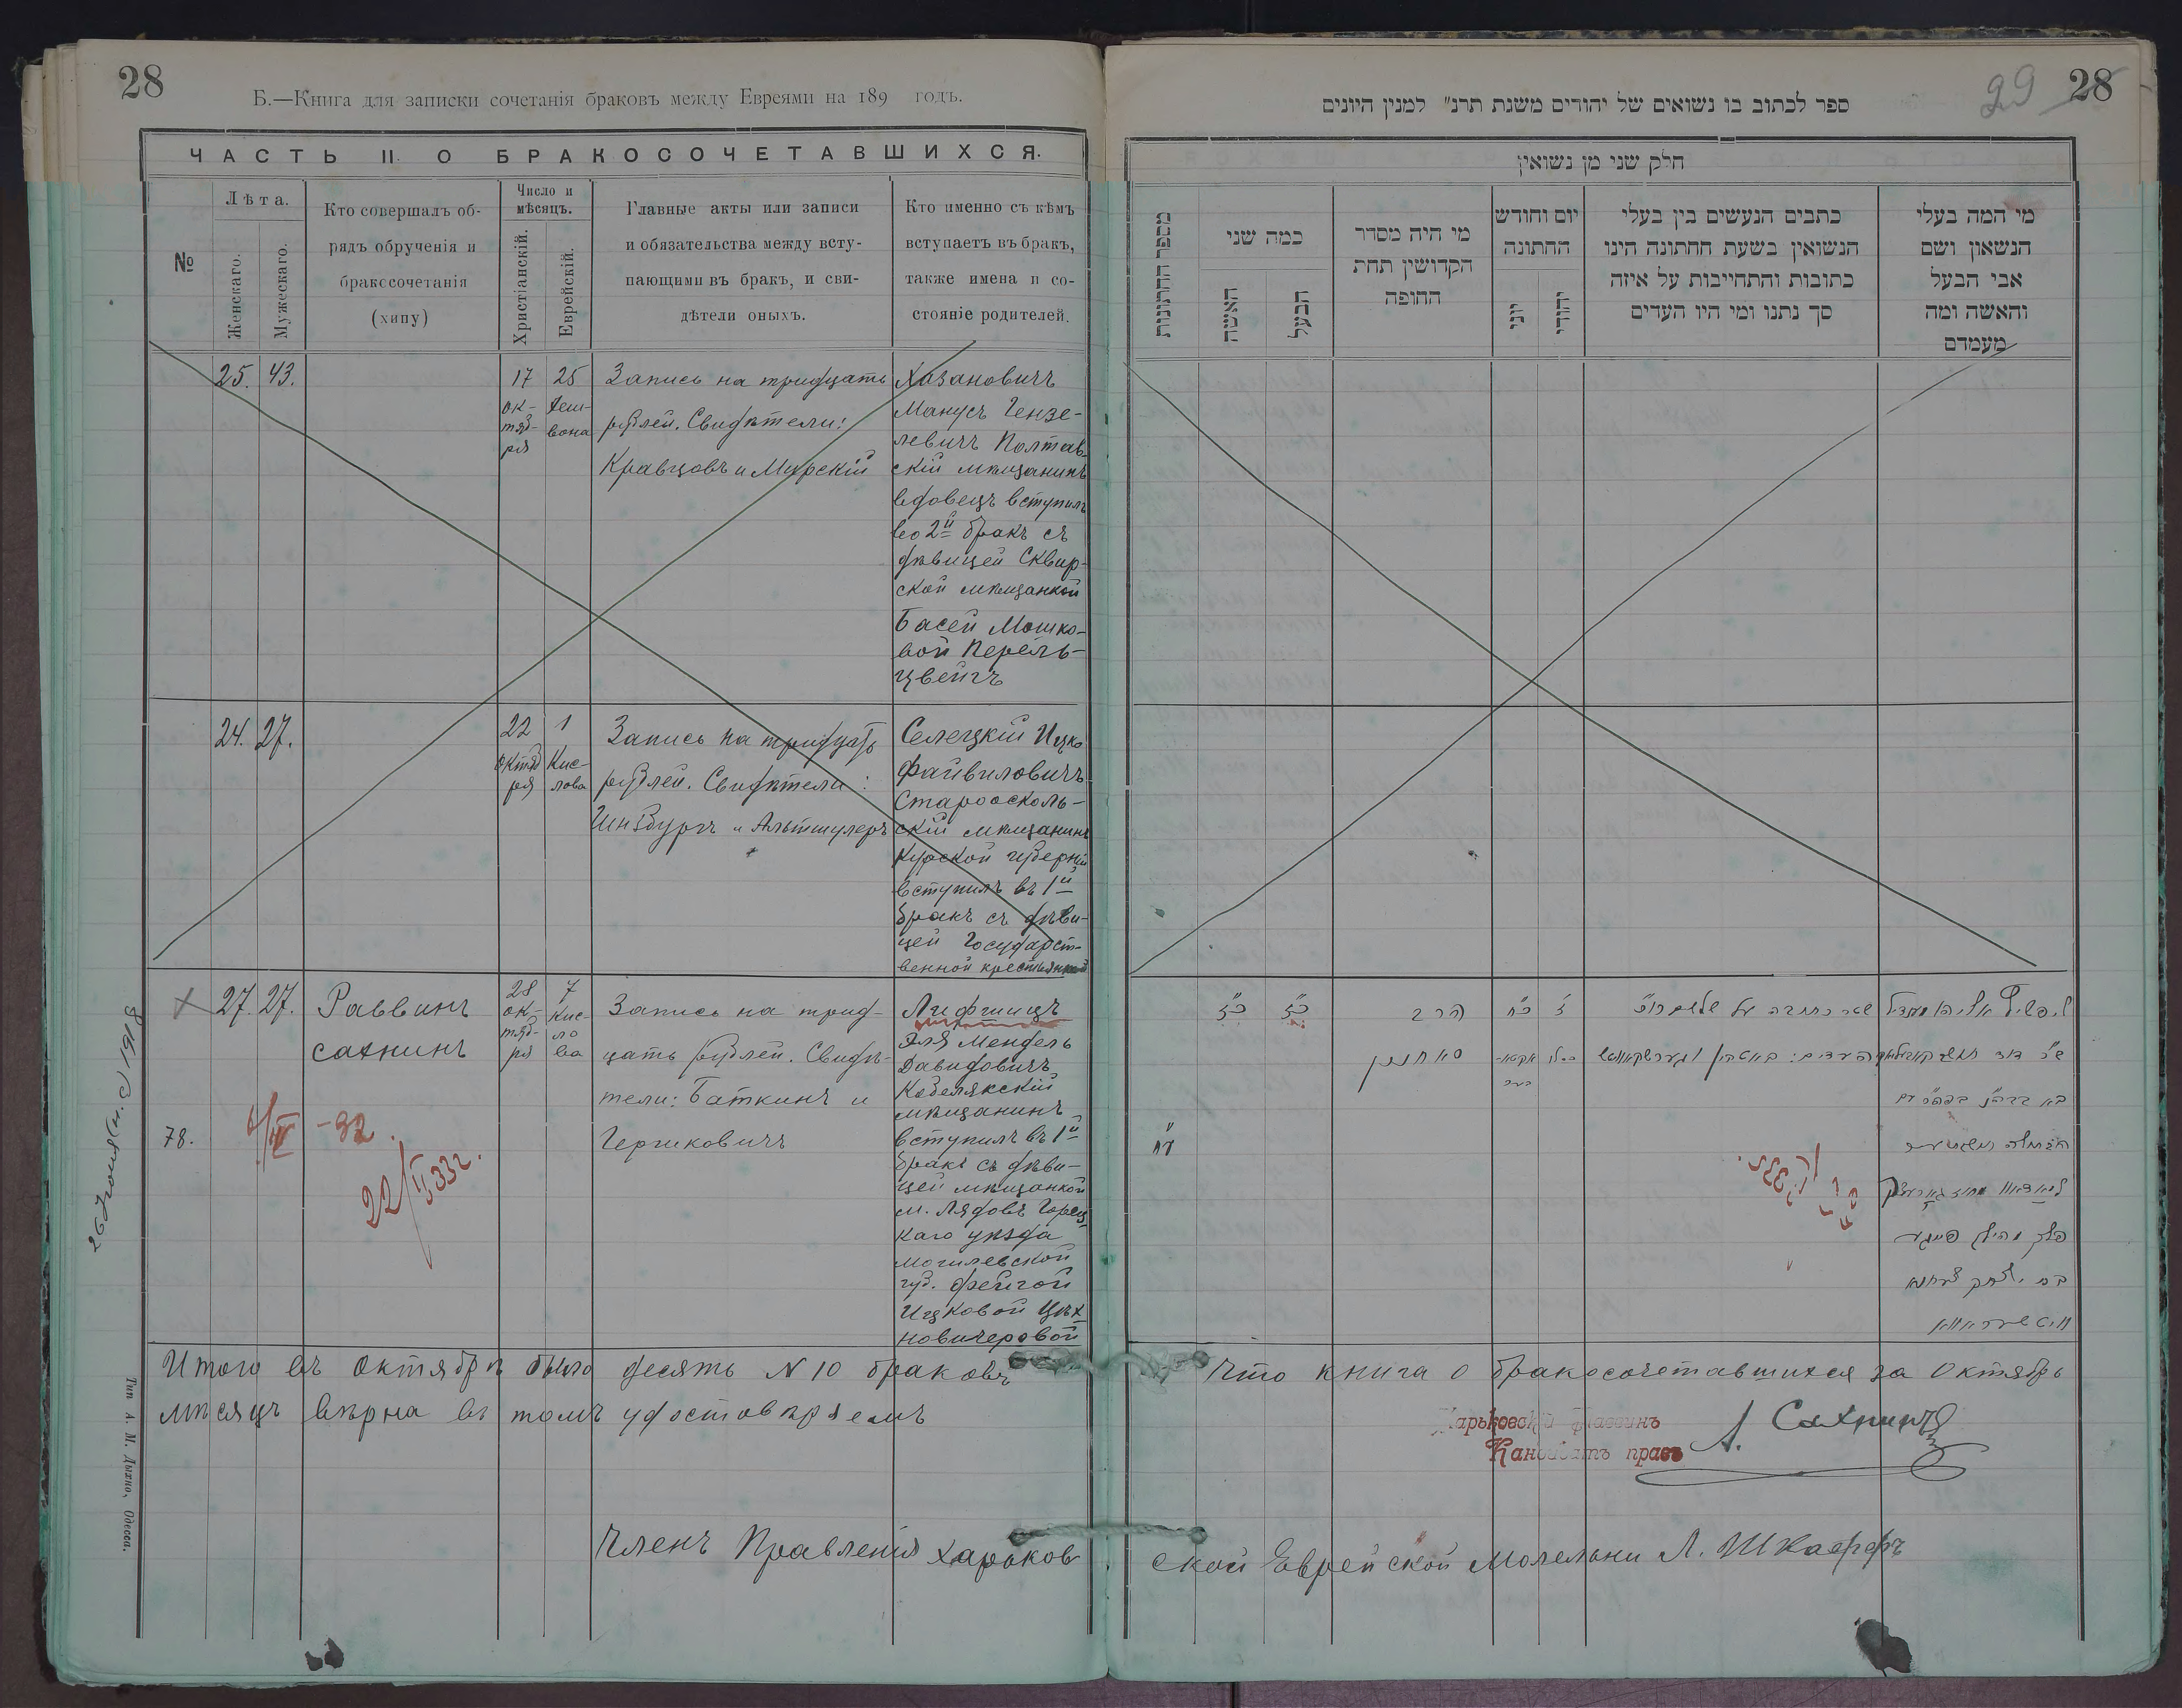 28
Б.—Книга для записки сочетанія браковъ между Евреями на 189 годъ.
ЧАСТЬ II. О БРАКОСОЧЕТАВШИХСЯ.
№
Лѣта.
Женскаго.
Мужескаго.
Кто совершалъ об-
рядъ обрученія и
бракссочетанія
(хипу)
Число и
мѣсяцъ.
Христіанскій.
Еврейскій.
Главные акты или записи
и обязательства между всту-
пающими въ бракъ, и сви-
дѣтели оныхъ.
Кто именно съ кѣмъ
вступаетъ въ бракъ,
также имена и со-
стояніе родителей.
25. 43.
17 октяб-
ря
25 Хеш-
вона
Запись на тридцать
рублей. Свидѣтели:
Кравцовъ и Мирскій
Хазановичъ
Манусъ Гензе-
левичъ Полтав-
скій мѣщанинъ
вдовецъ вступилъ
во 2й бракъ съ
дѣвицей Сквир-
ской мѣщанкой
Басей Мошко-
вой Перель-
цвейгъ
24. 27.
22
октяб
ря
1
Кис-
лова
Запись на тридцать
рублей. Свидѣтели:
Гинзбургъ и Альтшулеръ
Селецкій Ицко
Файвиловичъ
Староосколь-
скій мѣщанинъ
Курской губерніи
вступилъ въ 1й
бракъ съ дѣви-
цей Государст-
венной крестьянкой
27. 27.
Раввинъ
Сахнинъ
28
ок-
тяб-
ря
7
Кис-
ло
ва
Запись на трид-
цать рублей. Свидѣ-
тели: Баткинъ и
Гершковичъ
Лифшицъ
Эля Мендель
Давидовичъ
Кобелякскій
мѣщанинъ
вступилъ въ 1й
бракъ съ дѣви-
цей мѣщанкой
м. Лядовъ Горец-
каго уѣзда
Могилевской
губ. Фейгой
Ицковой Цѣх-
новичеровой
78.
-32.
22/II 33г.
Итого въ октябрѣ было десять N 10 браковъ
мѣсяцъ вѣрна въ томъ удостовѣряемъ
Членъ Правленія Харьков
Тип. А. М. Дыхно, Одесса.
28
29
ספר לכתוב בו נשואים של יהודים משנת תרנ״ למנין היונים
חלק שני מן נשואין
מספר החתונות
כמה שני
האשה
הבעל
מי היה מסדר
הקדושין תחת
החופה
יום וחודש
החתונה
יוני
יהודי
כתבים הנעשים בין בעלי
הנשואין בשעת החתונה הינו
כתובות והתחייבות על איזה
סך נתנו ומי היו העדים
מי המה בעלי
הנשאון ושם
אבי הבעל
והאשה ומה
מעמדם
כ״ז
כ״ז
הרב
סאחנין
כ״ח
ז׳
ע״ח
Что книга о бракосочетавшихся за Октябрь
Харьковскій Раввинъ
Кандидатъ правъ
А. Сахнинъ
ской Еврейской Молельни Л. Шкаффъ